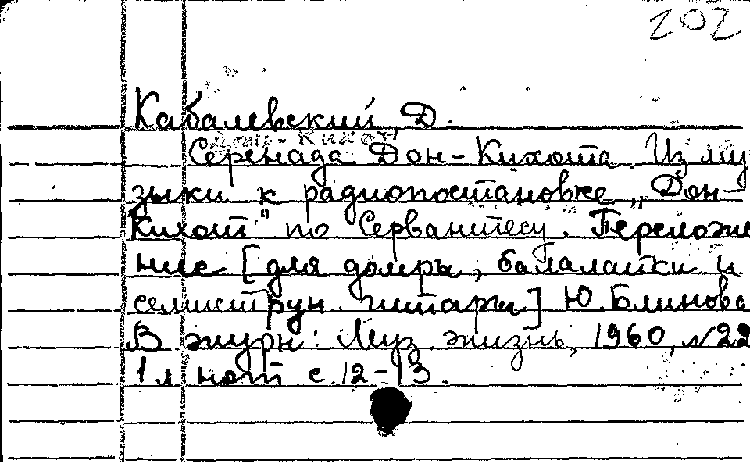 202
Кабалевский, Д.
Серенада Дон-Кихота. Из му
зыки к радиопостановке „Дон-
Кихот" по Сервантесу. Переложе
ние [для домры, балалайки и
семиструн. гитары] Ю. Блинова
В журн: Муз. жизнь, 1960, №22
1 л нот с. 12-13.